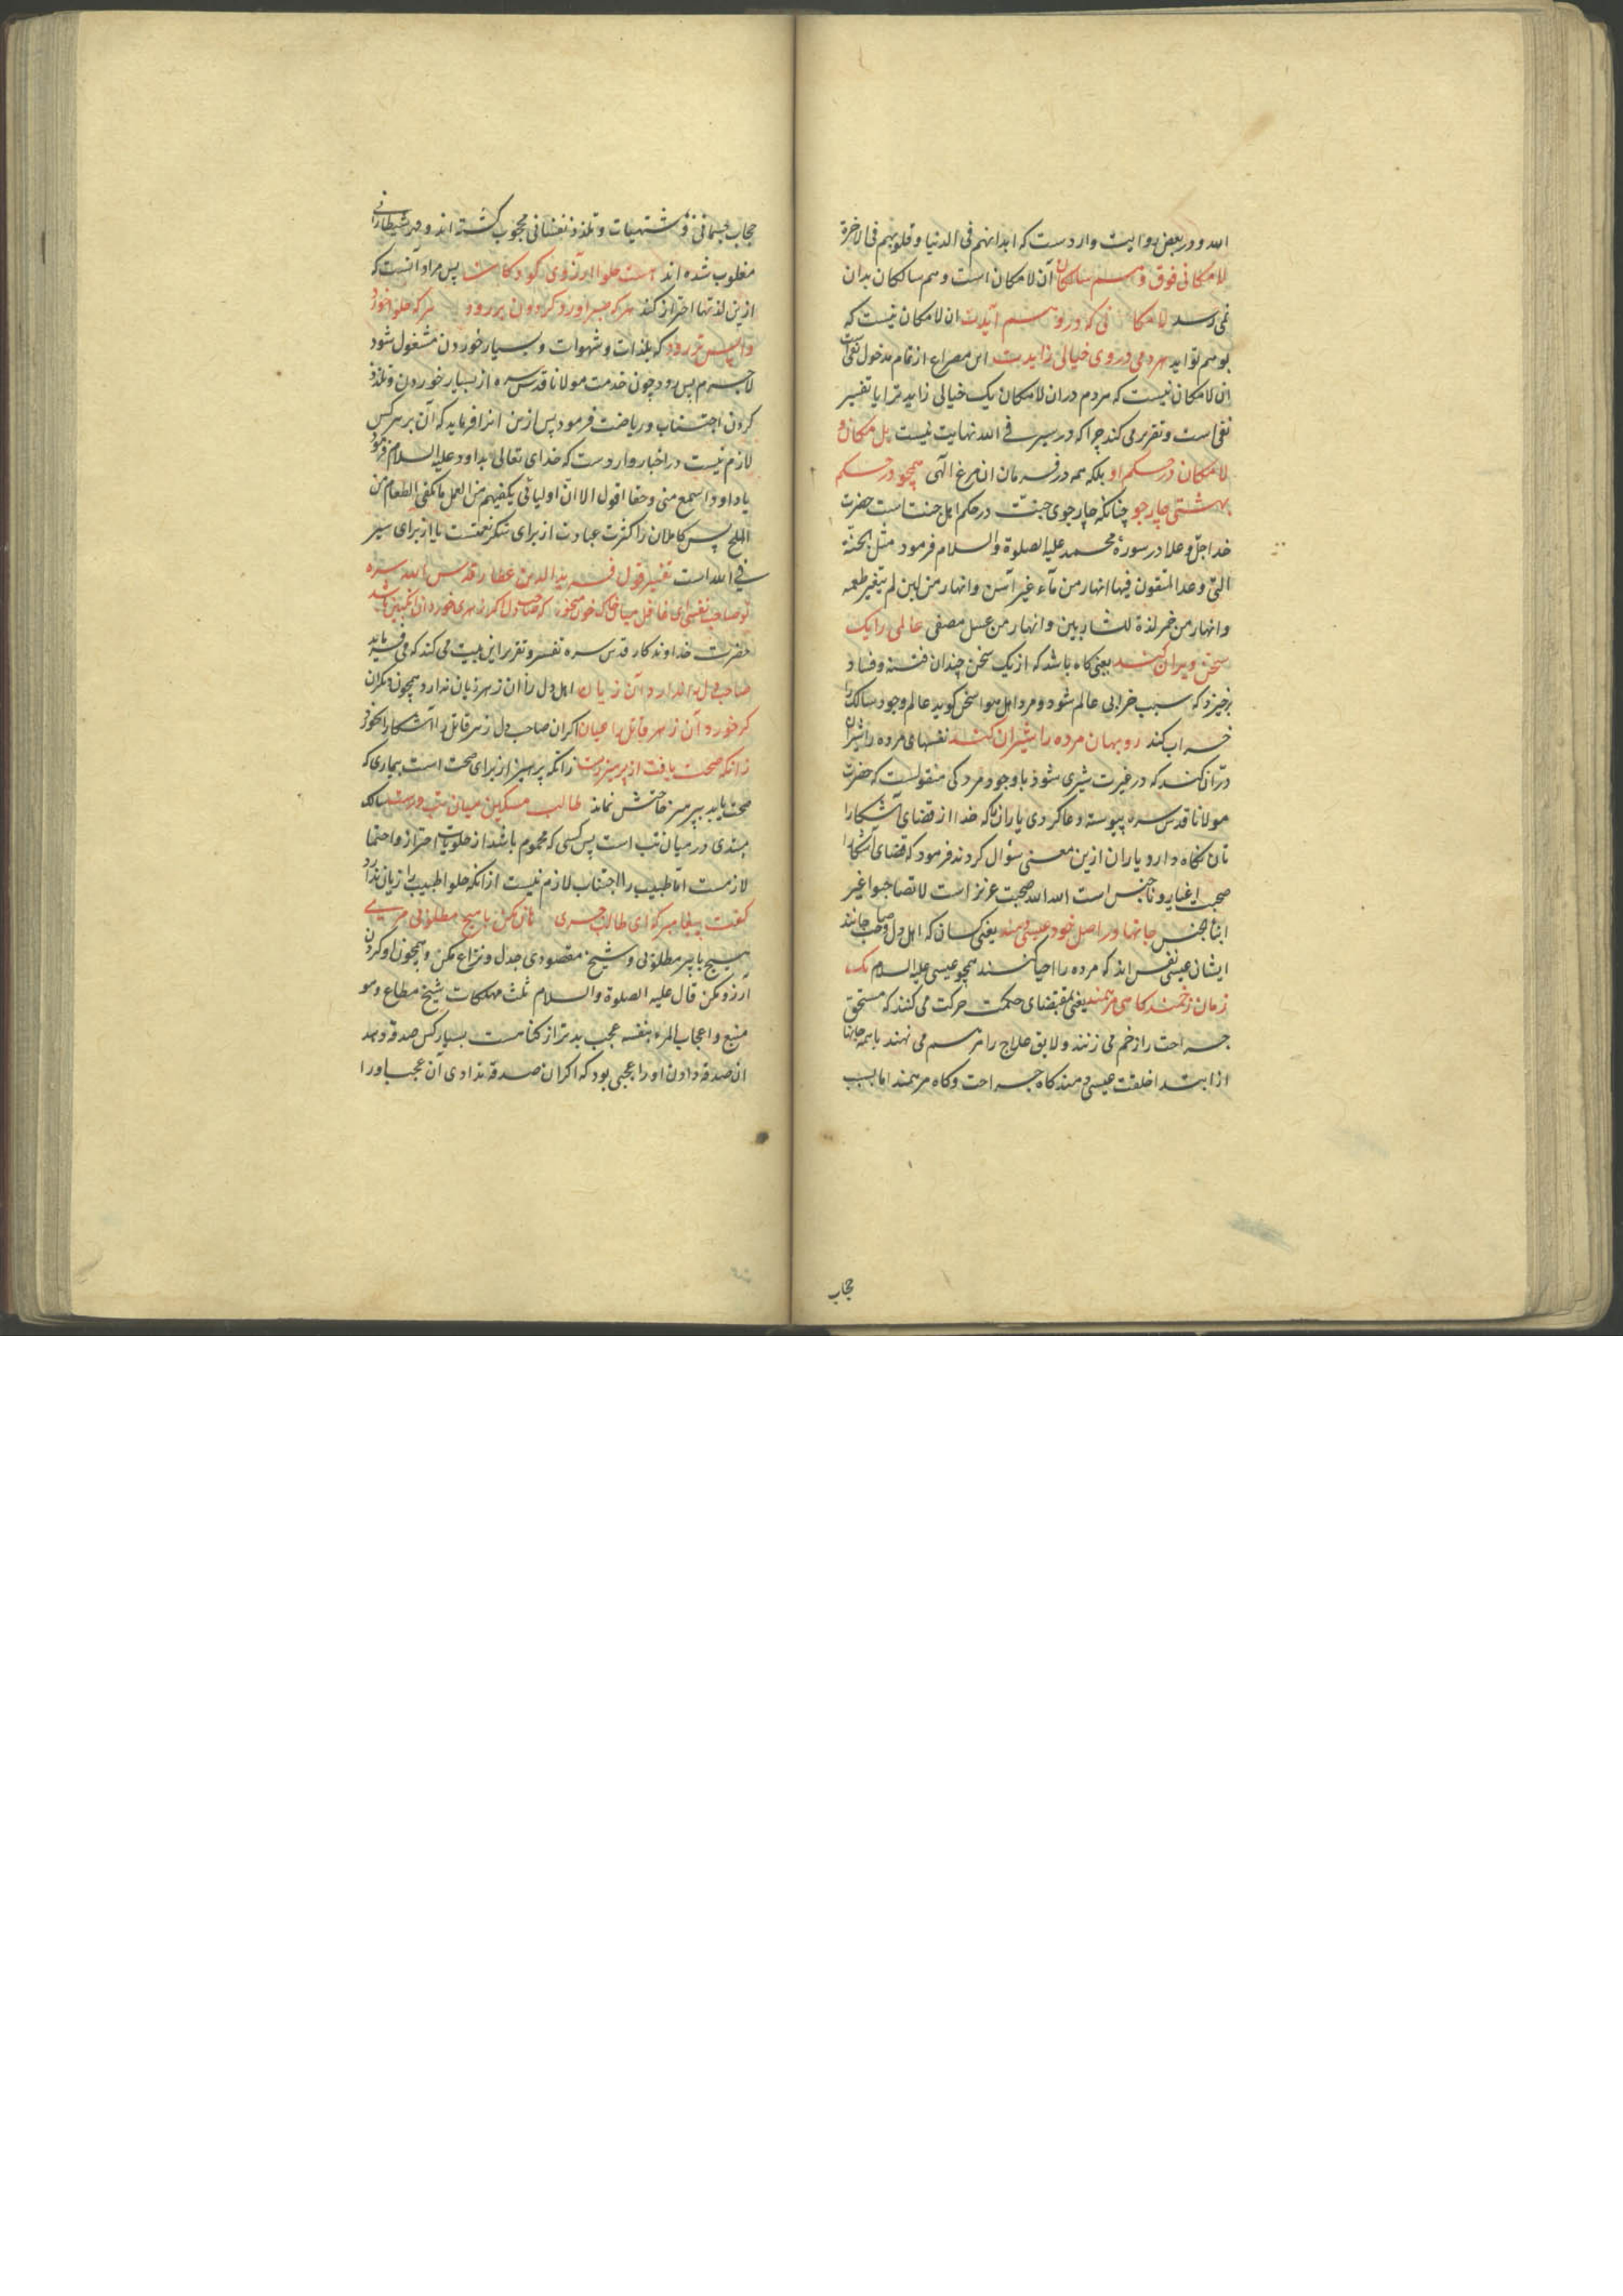 الله و در بعض روایت واردست که ابدانهم فی الدنیا و قلوبهم فی الاخرة
لامکانی فوق وهم سالکان آن لامکان است وهم سالکان بدان
نمی رسد لامکانی که در وهم آیدت ان لامکان نیست که
بوهم تو آید هر دمی در وی خیالی زایدت این مصراع از تمام مدخول نفی است
ان لامکان نیست که مردم دران لامکان یک خیالی زاید ترا یا تفسیر
نفی است و تقریر می کند چرا که در سیر فی الله نهایت نیست بل مکان و
لامکان در حکم او بلکه همه در فرمان ان مرغ الهی همچو در حکم
بهشتی چار جو چنانکه چار جوی جنت در حکم اهل جنت است حضرت
خدا جل و علا در سورۀ محمد علیه الصلوة والسلام فرمود مثل الجنة
التی وعد المتقون فیها انهار من مآء غیر آسن وانهار من لبن لم یتغیر طعمه
وانهار من خمر لذة للشاربین وانهار من عسل مصفی عالمی را یک
سخن ویران کند یعنی کاه باشد که از یک سخن چندان فتنه و فساد
برخیزد که سبب خرابی عالم شود و مرد اهل هوا سخن کوید عالم وجود سالک را
خراب کند روبهان مرده را شیران کند نفسهای مرده را شیران
درّان کند که در غیرت شیری شوذ با وجود مردکی منقولست که حضرت
مولانا قدس سره پیوسته دعا کردی یاران را که خدا از قضای آشکارا
تان نکاه دارد یاران ازین معنی سؤال کردند فرمود که قضای آشکارا
صحبت اغیار و ناجنس است الله الله صحبت عزیز است لا تصاحبوا غیر
ابناء جنس جانها در اصل خود عیسی دمند یعنی کسان که اهل دل و صاحب جانند
ایشان عیسی نفس اند که مرده را احیا کنند همچو عیسی علیه السلام یک
زمان زخمند کاهی مرهمند یعنی بمقتضای حکمت حرکت می کنند که مستحق
جراحت را زخم می زنند و لایق علاج را مرهم می نهند با همه جانها
از ابتدا خلقت عیسی دمند کاه جراحت و کاه مرهمند اما بسبب
حجاب
حجاب جسمانی و مشتهیات و تلذذ نفسانی محجوب کشته اند و
مغلوب شده اند هست حلوا آرزوی کودکان پس مراد آنست که
ازین لذتها احتراز کند هر که صبر آورد کردون بر رود هر که حلوا خورد
واپس تر رود که بلذات و شهوات و بسیار خوردن مشغول شود
لاجرم پس رود چون خدمت مولانا قدس سره از بسیار خوردن و تلذذ
کردن اجتناب و ریاضت فرمود پس ازین انرا فرماید که آن بر هر کس
لازم نیست در اخبار واردست که خدای تعالی بداود علیه السلام فرمود
یا داود اسمع منی وحقا اقول الا ان اولیائی یکفیهم من العمل ما یکفی الطعام من
الملح پس کاملان را کثرت عبادت از برای شکر نعمتست یا از برای سیر
فی الله است تفسیر قول فرید الدین عطار قدس الله سره
تو صاحب نفسی ای غافل میان خاک خون میخور که صاحب دل اکر زهری خورد ان انکبین باشد
حضرت خداوندکار قدس سره تفسیر و تقریر این بیت می کند که می فرماید
صاحب دل را ندارد آن زیان اهل دل را ان زهر زیان ندارد همچون دیکران
کر خورد آن زهر قاتل را عیان اکر ان صاحب دل زهر قاتل را آشکارا بخورد
زانکه صحت یافت از پرهیز رست زانکه پرهیز از برای صحت است بیماری که
صحت یابد بپرهیز حاجتش نماند طالب مسکین میان تب درست سالک
مبتدی در میان تب است پس کسی که محموم باشد از حلویات احتراز و احتما
لازمست اما طبیب را اجتناب لازم نیست از انکه حلوا طبیب را زیان ندارد
کفت پیغامبر که ای طالب جری هان مکن با هیچ مطلوبی مری
هیچ با پیر مطلوبی و شیخ مقصودی جدل و نزاع مکن و همچون او کردن
آرزو مکن قال علیه الصلوة والسلام ثلث مهلکات شیخ مطاع و هو
متبع و اعجاب المرء بنفسه عجب بدتر از کناهست بسیار کس صدقه دهد
ان صدقه دادن او را عجبی بود که اکر ان صدقه ندادی آن عجب او را